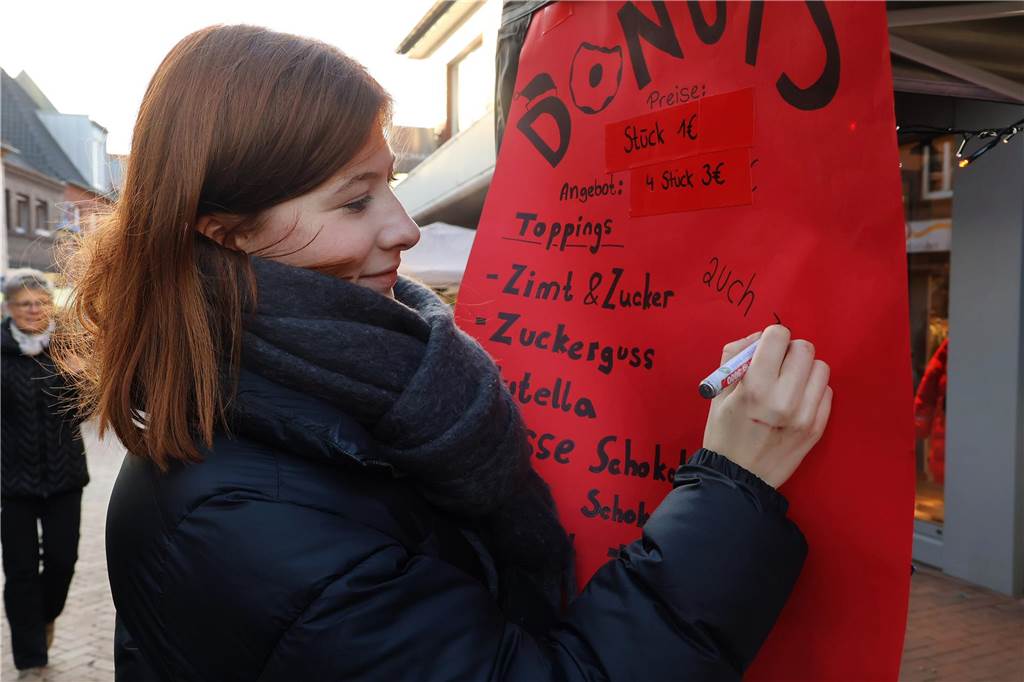 DONUTS
Preise:
Stück 1€
Angebot: 4 Stück 3€
Toppings
- Zimt & Zucker
- Zuckerguss
auch
utella
sse Schok
Schok